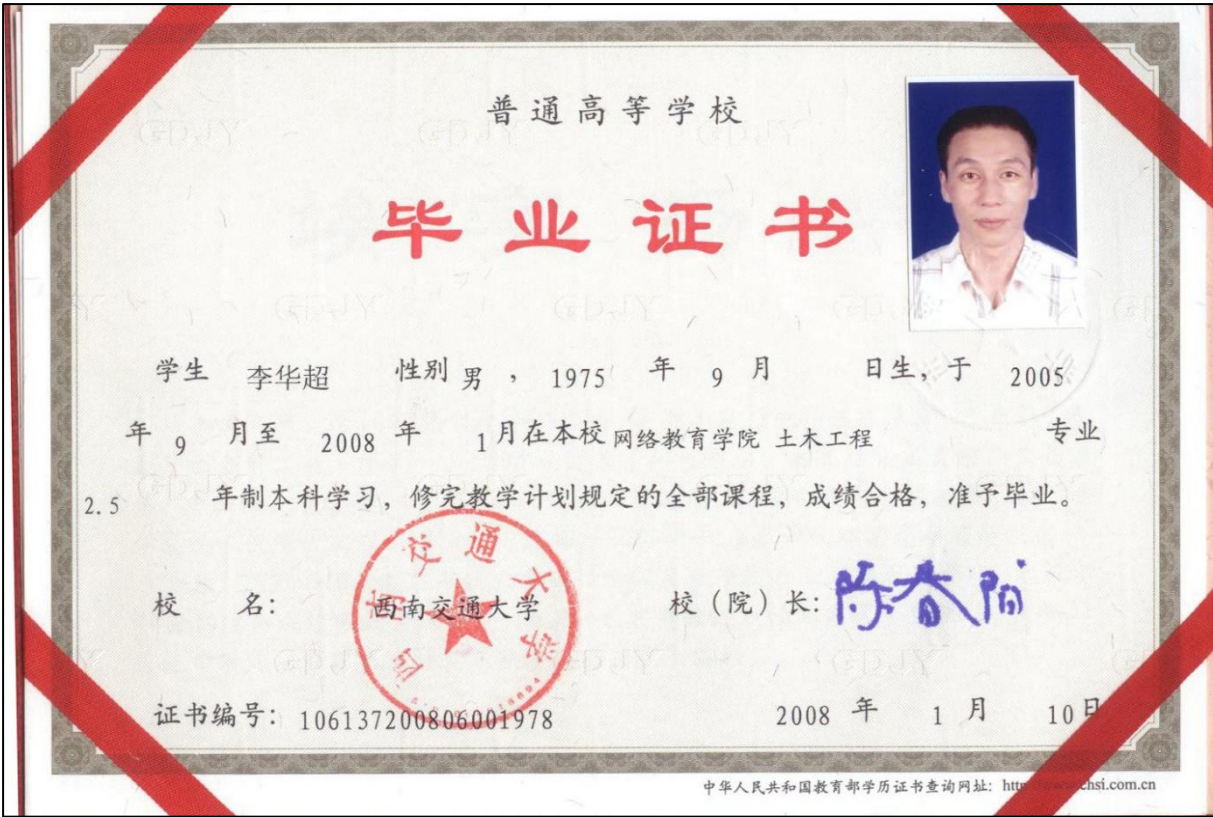 普通高等学校
毕业证书
学生 李华超 性别 男 , 1975 年 9 月 日生, 于 2005
年 9 月至 2008 年 1 月在本校 网络教育学院 土木工程 专业
2.5 年制本科学习, 修完教学计划规定的全部课程, 成绩合格, 准予毕业。
西南交通大学
校 名: 西南交通大学 校(院)长: 陈春阳
证书编号: 106137200806001978 2008 年 1 月 10 日
中华人民共和国教育部学历证书查询网址: http chsi.com.cn